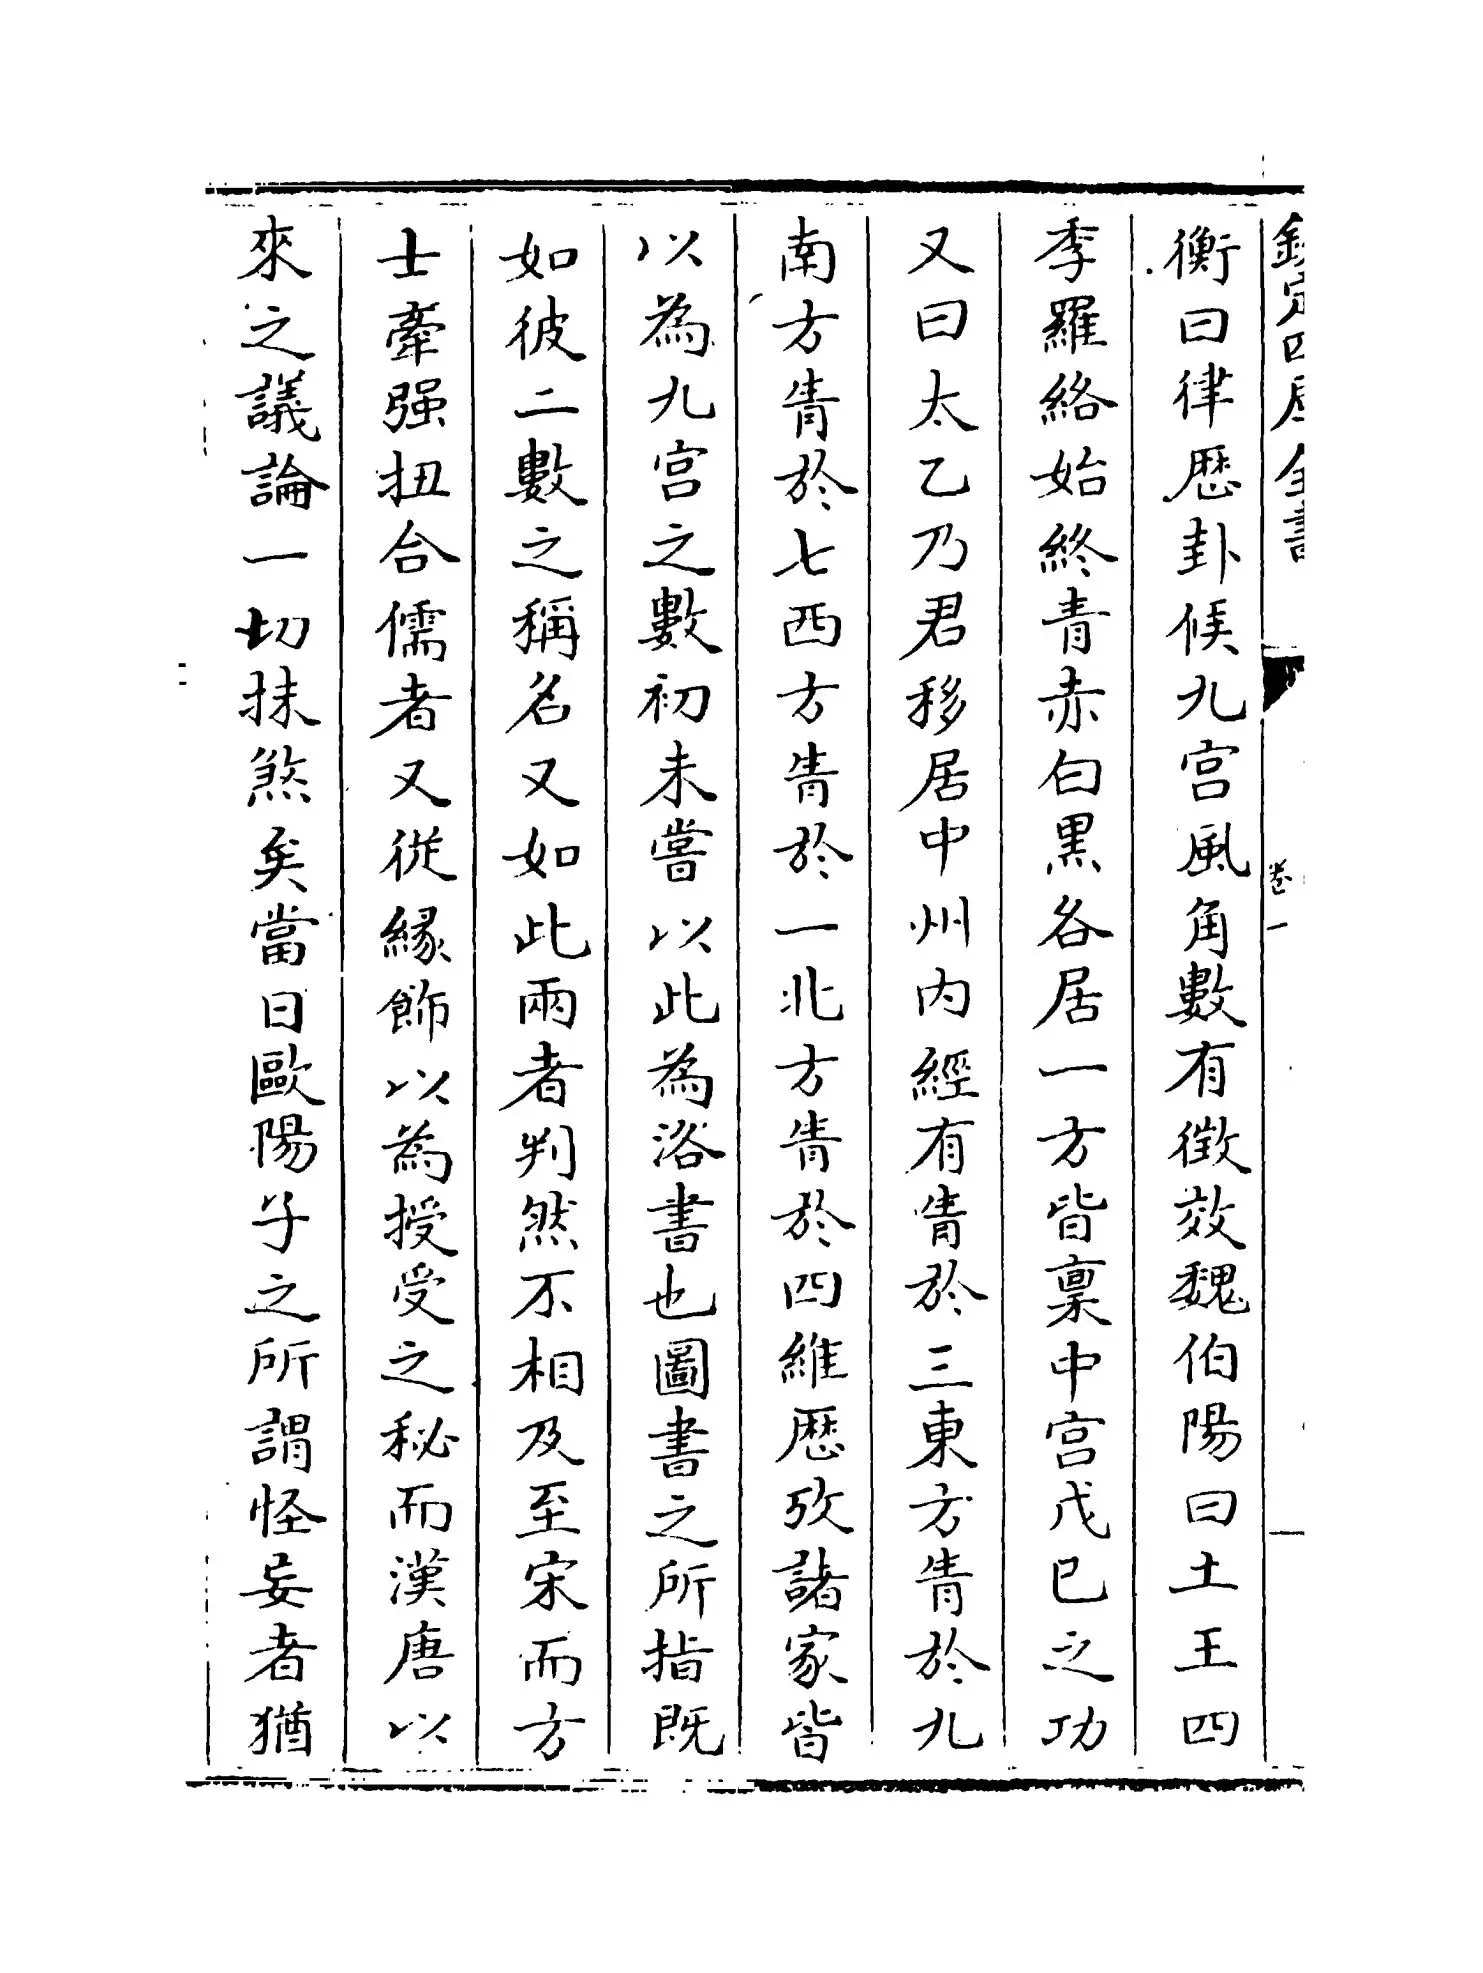 欽定四庫全書
卷一
衡曰律歴卦候九宫風角數有徴效魏伯陽曰土王四
季羅絡始終青赤白黒各居一方皆禀中宫戊巳之功
又曰太乙乃君移居中州内經有眚於三東方眚於九
南方眚於七西方眚於一北方眚於四維歴攷諸家皆
以為九宫之數初未嘗以此為洛書也圖書之所指既
如彼二數之稱名又如此兩者判然不相及至宋而方
士牽强扭合儒者又從縁飾以為授受之秘而漢唐以
來之議論一切抹煞矣當日歐陽子之所謂怪妄者猶